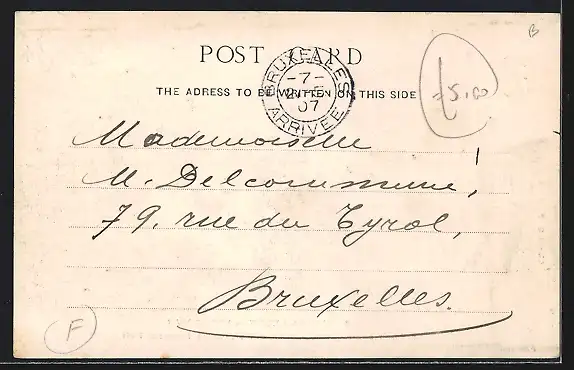 B
POST CARD
£5.00
THE ADRESS TO BE WRITTEN ON THIS SIDE
BRUXELLES
-7-
07
ARRIVEE
Mademoiselle
M. Delcommune,
79. rue du Tyrol,
Bruxelles.
F